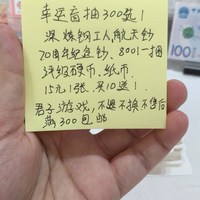 幸运盲抽300选1
深炼钢工人航天钞
70周年纪念钞、8001一捆
评级硬币、纸币
15元1张、买10送1
君子游戏,不退不换不售后
满300包邮
100